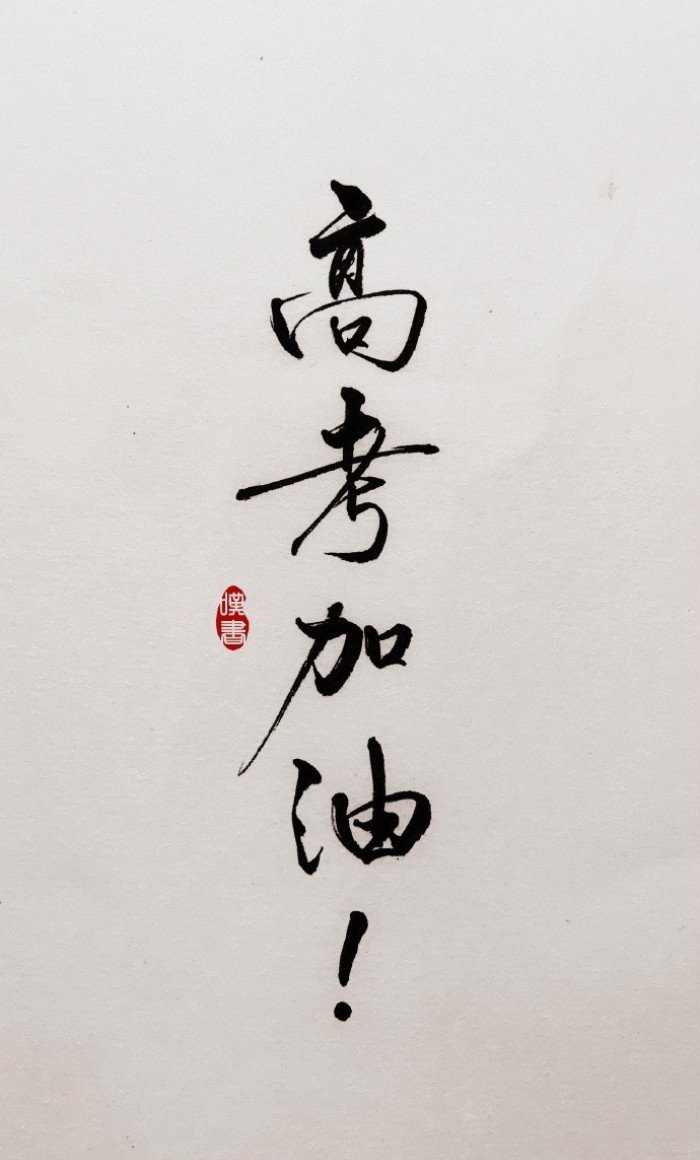 高考加油！
嘆書